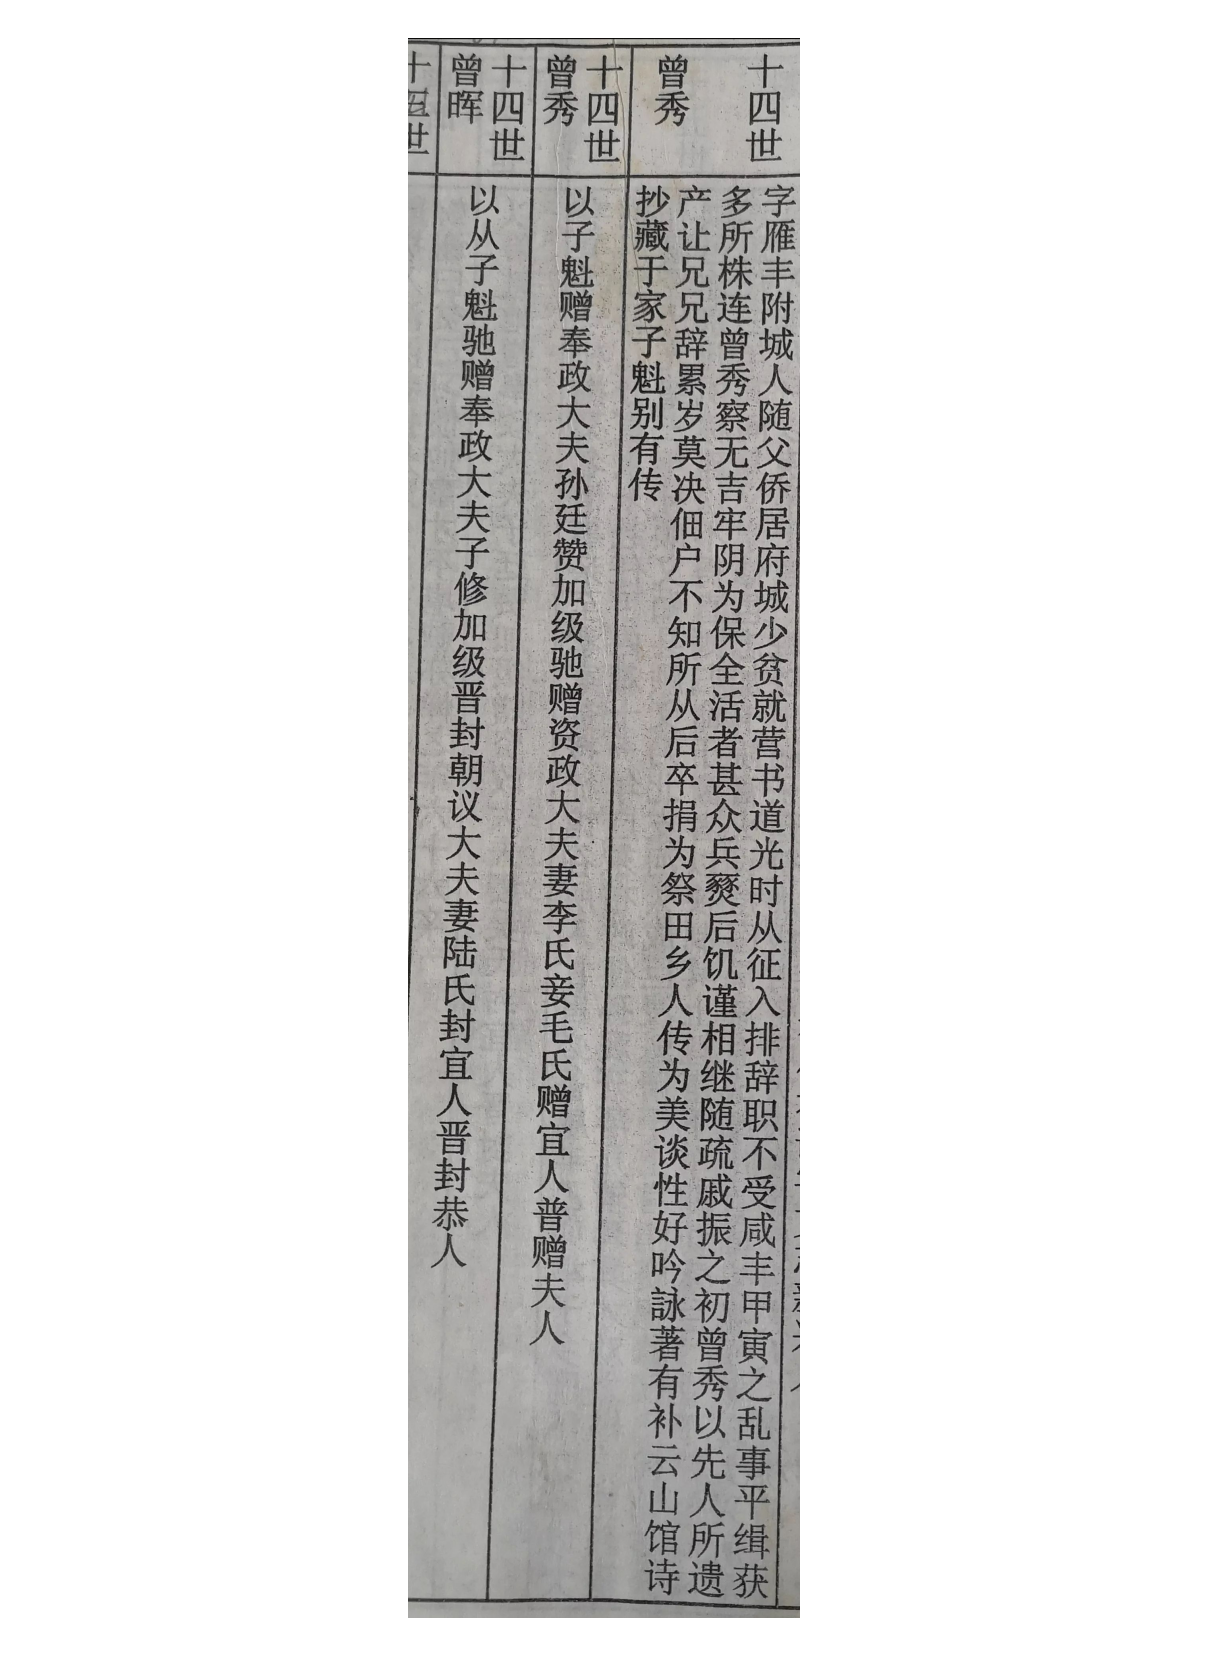 十四世
曾秀
字雁丰附城人随父侨居府城少贫就营书道光时从征入排辞职不受咸丰甲寅之乱事平缉获
多所株连曾秀察无吉牢阴为保全活者甚众兵燹后饥谨相继随疏戚振之初曾秀以先人所遗
产让兄兄辞累岁莫决佃户不知所从后卒捐为祭田乡人传为美谈性好吟詠著有补云山馆诗
抄藏于家子魁别有传
十四世
曾秀
以子魁赠奉政大夫孙廷赞加级驰赠资政大夫妻李氏妾毛氏赠宜人普赠夫人
十四世
曾晖
以从子魁驰赠奉政大夫子修加级晋封朝议大夫妻陆氏封宜人晋封恭人